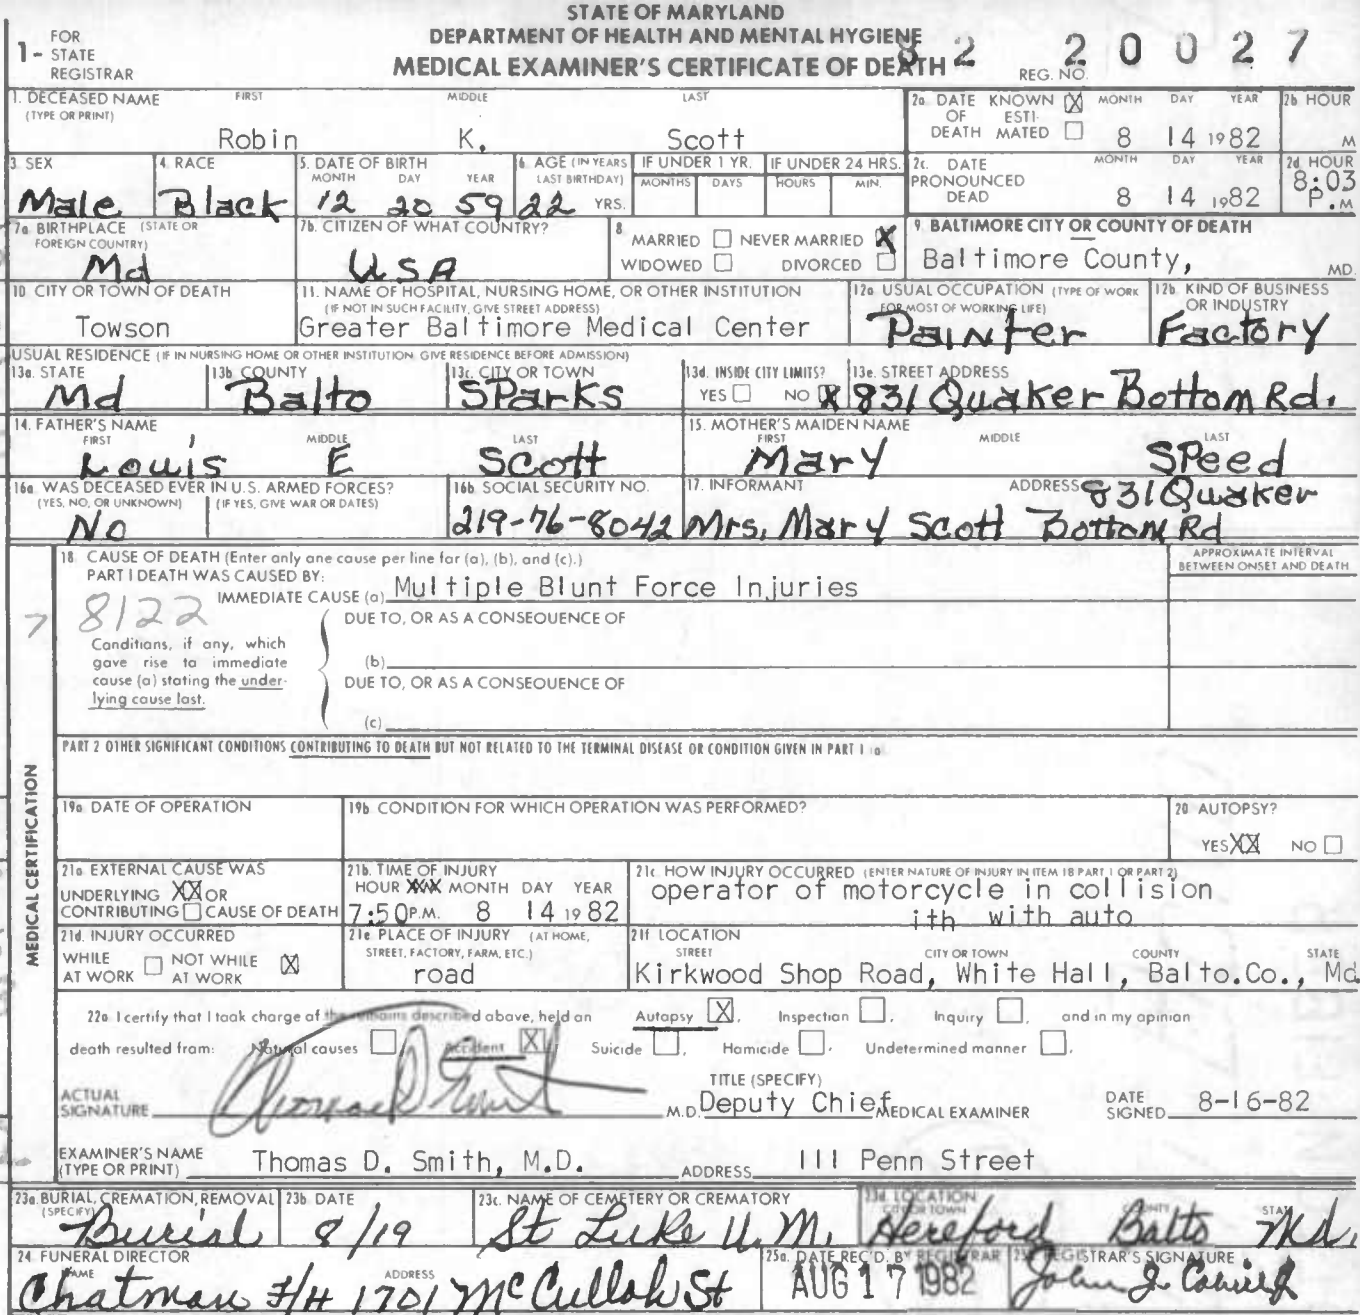 STATE OF MARYLAND
DEPARTMENT OF HEALTH AND MENTAL HYGIENE
MEDICAL EXAMINER'S CERTIFICATE OF DEATH
1- FOR STATE REGISTRAR
82 20027
REG. NO.
1. DECEASED NAME (TYPE OR PRINT) FIRST MIDDLE LAST
Robin K. Scott
2a. DATE OF DEATH KNOWN X ESTIMATED MONTH DAY YEAR 2b HOUR
8 14 1982 M
3. SEX 4. RACE 5. DATE OF BIRTH MONTH DAY YEAR 6. AGE (IN YEARS LAST BIRTHDAY) IF UNDER 1 YR. MONTHS DAYS IF UNDER 24 HRS. HOURS MIN.
Male Black 12 20 59 22 YRS.
2c. DATE PRONOUNCED DEAD MONTH DAY YEAR 2d. HOUR
8 14 1982 8:03 P.M
7a. BIRTHPLACE (STATE OR FOREIGN COUNTRY) 7b. CITIZEN OF WHAT COUNTRY?
Md USA
8. MARRIED NEVER MARRIED X
WIDOWED DIVORCED
9. BALTIMORE CITY OR COUNTY OF DEATH
Baltimore County, MD.
10. CITY OR TOWN OF DEATH
Towson
11. NAME OF HOSPITAL, NURSING HOME, OR OTHER INSTITUTION
(IF NOT IN SUCH FACILITY, GIVE STREET ADDRESS)
Greater Baltimore Medical Center
12a. USUAL OCCUPATION (TYPE OF WORK FOR MOST OF WORKING LIFE)
Painter
12b. KIND OF BUSINESS OR INDUSTRY
Factory
USUAL RESIDENCE (IF IN NURSING HOME OR OTHER INSTITUTION, GIVE RESIDENCE BEFORE ADMISSION)
13a. STATE 13b. COUNTY 13c. CITY OR TOWN 13d. INSIDE CITY LIMITS? YES NO X 13e. STREET ADDRESS
Md Balto SParks 831 Quaker Bottom Rd.
14. FATHER'S NAME FIRST MIDDLE LAST
Louis E Scott
15. MOTHER'S MAIDEN NAME FIRST MIDDLE LAST
Mary SPeed
16a. WAS DECEASED EVER IN U.S. ARMED FORCES?
(YES, NO, OR UNKNOWN) (IF YES, GIVE WAR OR DATES)
No
16b. SOCIAL SECURITY NO.
219-76-8042
17. INFORMANT ADDRESS
Mrs. Mary Scott 831 Quaker Bottom Rd
MEDICAL CERTIFICATION
18. CAUSE OF DEATH (Enter only one cause per line for (a), (b), and (c).)
APPROXIMATE INTERVAL BETWEEN ONSET AND DEATH
PART I DEATH WAS CAUSED BY:
IMMEDIATE CAUSE (a) Multiple Blunt Force Injuries
7 8122
DUE TO, OR AS A CONSEQUENCE OF
Conditions, if any, which gave rise to immediate cause (a) stating the underlying cause last.
(b)
DUE TO, OR AS A CONSEQUENCE OF
(c)
PART 2 OTHER SIGNIFICANT CONDITIONS CONTRIBUTING TO DEATH BUT NOT RELATED TO THE TERMINAL DISEASE OR CONDITION GIVEN IN PART 1 (a)
19a. DATE OF OPERATION 19b. CONDITION FOR WHICH OPERATION WAS PERFORMED?
20 AUTOPSY? YES XX NO
21a. EXTERNAL CAUSE WAS
UNDERLYING XX OR
CONTRIBUTING CAUSE OF DEATH
21b. TIME OF INJURY
HOUR XXX MONTH DAY YEAR
7:50 P.M. 8 14 1982
21c. HOW INJURY OCCURRED (ENTER NATURE OF INJURY IN ITEM 18 PART 1 OR PART 2)
operator of motorcycle in collision
ith with auto
21d. INJURY OCCURRED
WHILE AT WORK NOT WHILE AT WORK X
21e. PLACE OF INJURY (AT HOME, STREET, FACTORY, FARM, ETC.)
road
21f LOCATION STREET CITY OR TOWN COUNTY STATE
Kirkwood Shop Road, White Hall, Balto.Co., Md.
22a. I certify that I took charge of the remains described above, held an Autopsy X, Inspection , Inquiry , and in my opinion
death resulted from: Natural causes Accident X, Suicide , Homicide , Undetermined manner .
ACTUAL SIGNATURE Thomas D Smith M.D.
TITLE (SPECIFY)
Deputy Chief MEDICAL EXAMINER
DATE SIGNED 8-16-82
EXAMINER'S NAME (TYPE OR PRINT) Thomas D. Smith, M.D. ADDRESS 111 Penn Street
23a. BURIAL, CREMATION, REMOVAL (SPECIFY) 23b. DATE 23c. NAME OF CEMETERY OR CREMATORY 23d. LOCATION CITY OR TOWN COUNTY STATE
Burial 8/19 St Luke U.M. Hereford Balto Md.
24. FUNERAL DIRECTOR NAME ADDRESS
Chatman F/H 1701 McCulloh St
25a. DATE REC'D. BY REGISTRAR
AUG 17 1982
25b. REGISTRAR'S SIGNATURE
John J.